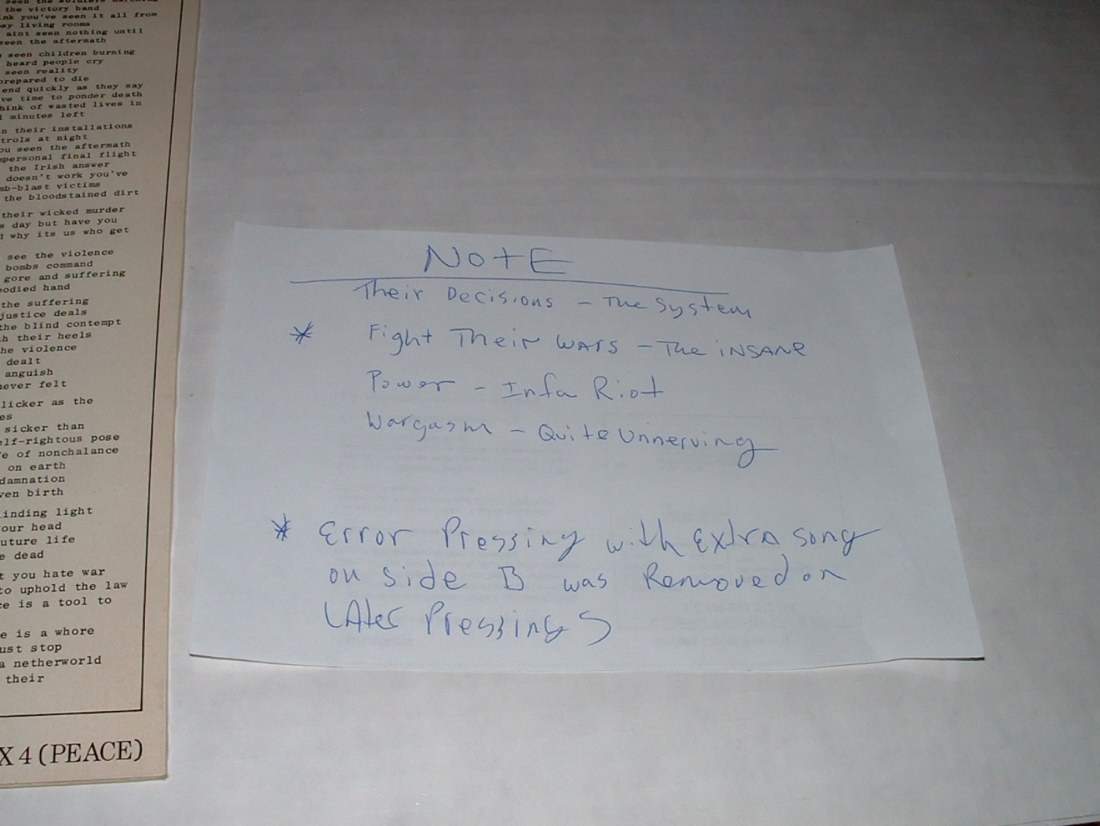 the victory hand
nk you've seen it all from
living rooms
aint seen nothing until
seen the aftermath
seen children burning
heard people cry
seen reality
prepared to die
end quickly as they say
ve time to ponder death
hink of wasted lives in
minutes left
n their installations
trols at night
ou seen the aftermath
personal final flight
the Irish answer
doesn't work you've
mb-blast victims
the bloodstained dirt
their wicked murder
s day but have you
d why its us who get
see the violence
bombs command
gore and suffering
odied hand
the suffering
justice deals
the blind contempt
h their heels
he violence
dealt
anguish
never felt
licker as the
es
sicker than
elf-rightous pose
e of nonchalance
on earth
damnation
ven birth
inding light
our head
uture life
e dead
t you hate war
to uphold the law
ce is a tool to
e is a whore
ust stop
a netherworld
their
X 4 (PEACE)
NOTE
Their Decisions - The System
* Fight Their WARS - The INSANE
Power - Infa Riot
Wargasm - Quite Unnerving
* Error Pressing with Extra song
on side B was Removed on
LAter Pressings